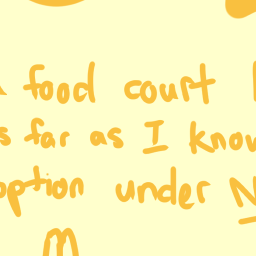 food court
far as I know
option under